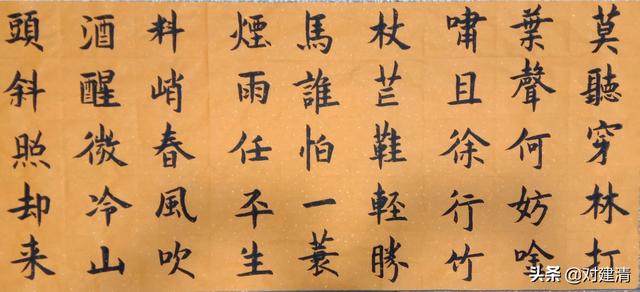 莫聽穿林打
葉聲何妨唫
嘯且徐行竹
杖芒鞋軽勝
馬誰怕一蓑
煙雨任平生
料峭春風吹
酒醒微冷山
頭斜照却来
头条 @对建清